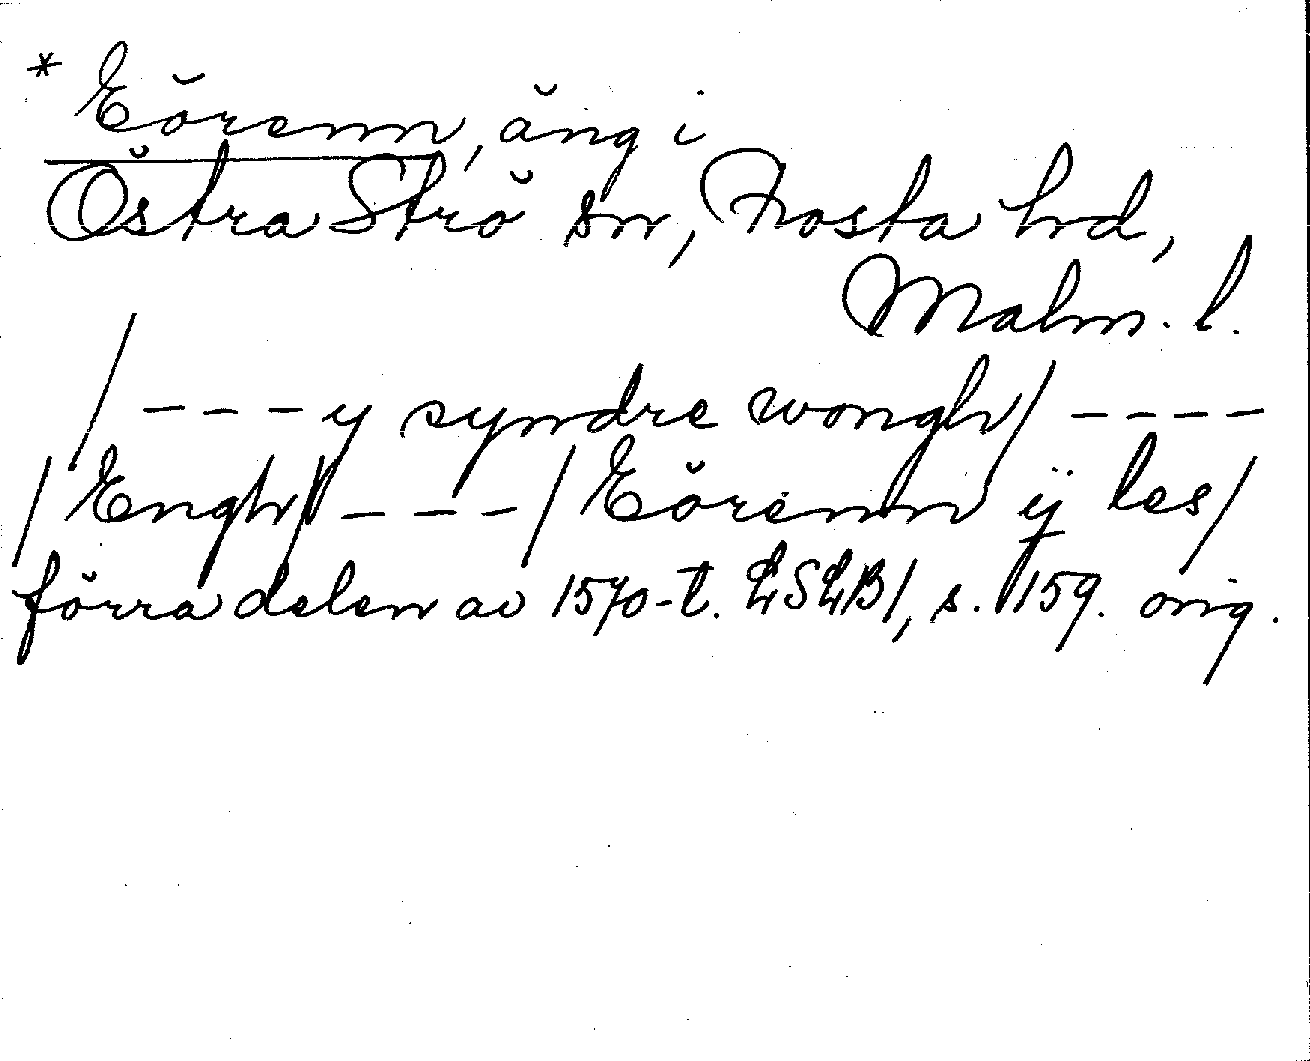 * Eörenn, äng i
Östra Strö sn, Frosta hd,
Malm. l.
/ - - - y syndre wongh / - - - -
/ Engh / - - - / Eörenn ÿ les /
förra delen av 1570-t. LSLB1, s. 159. orig.